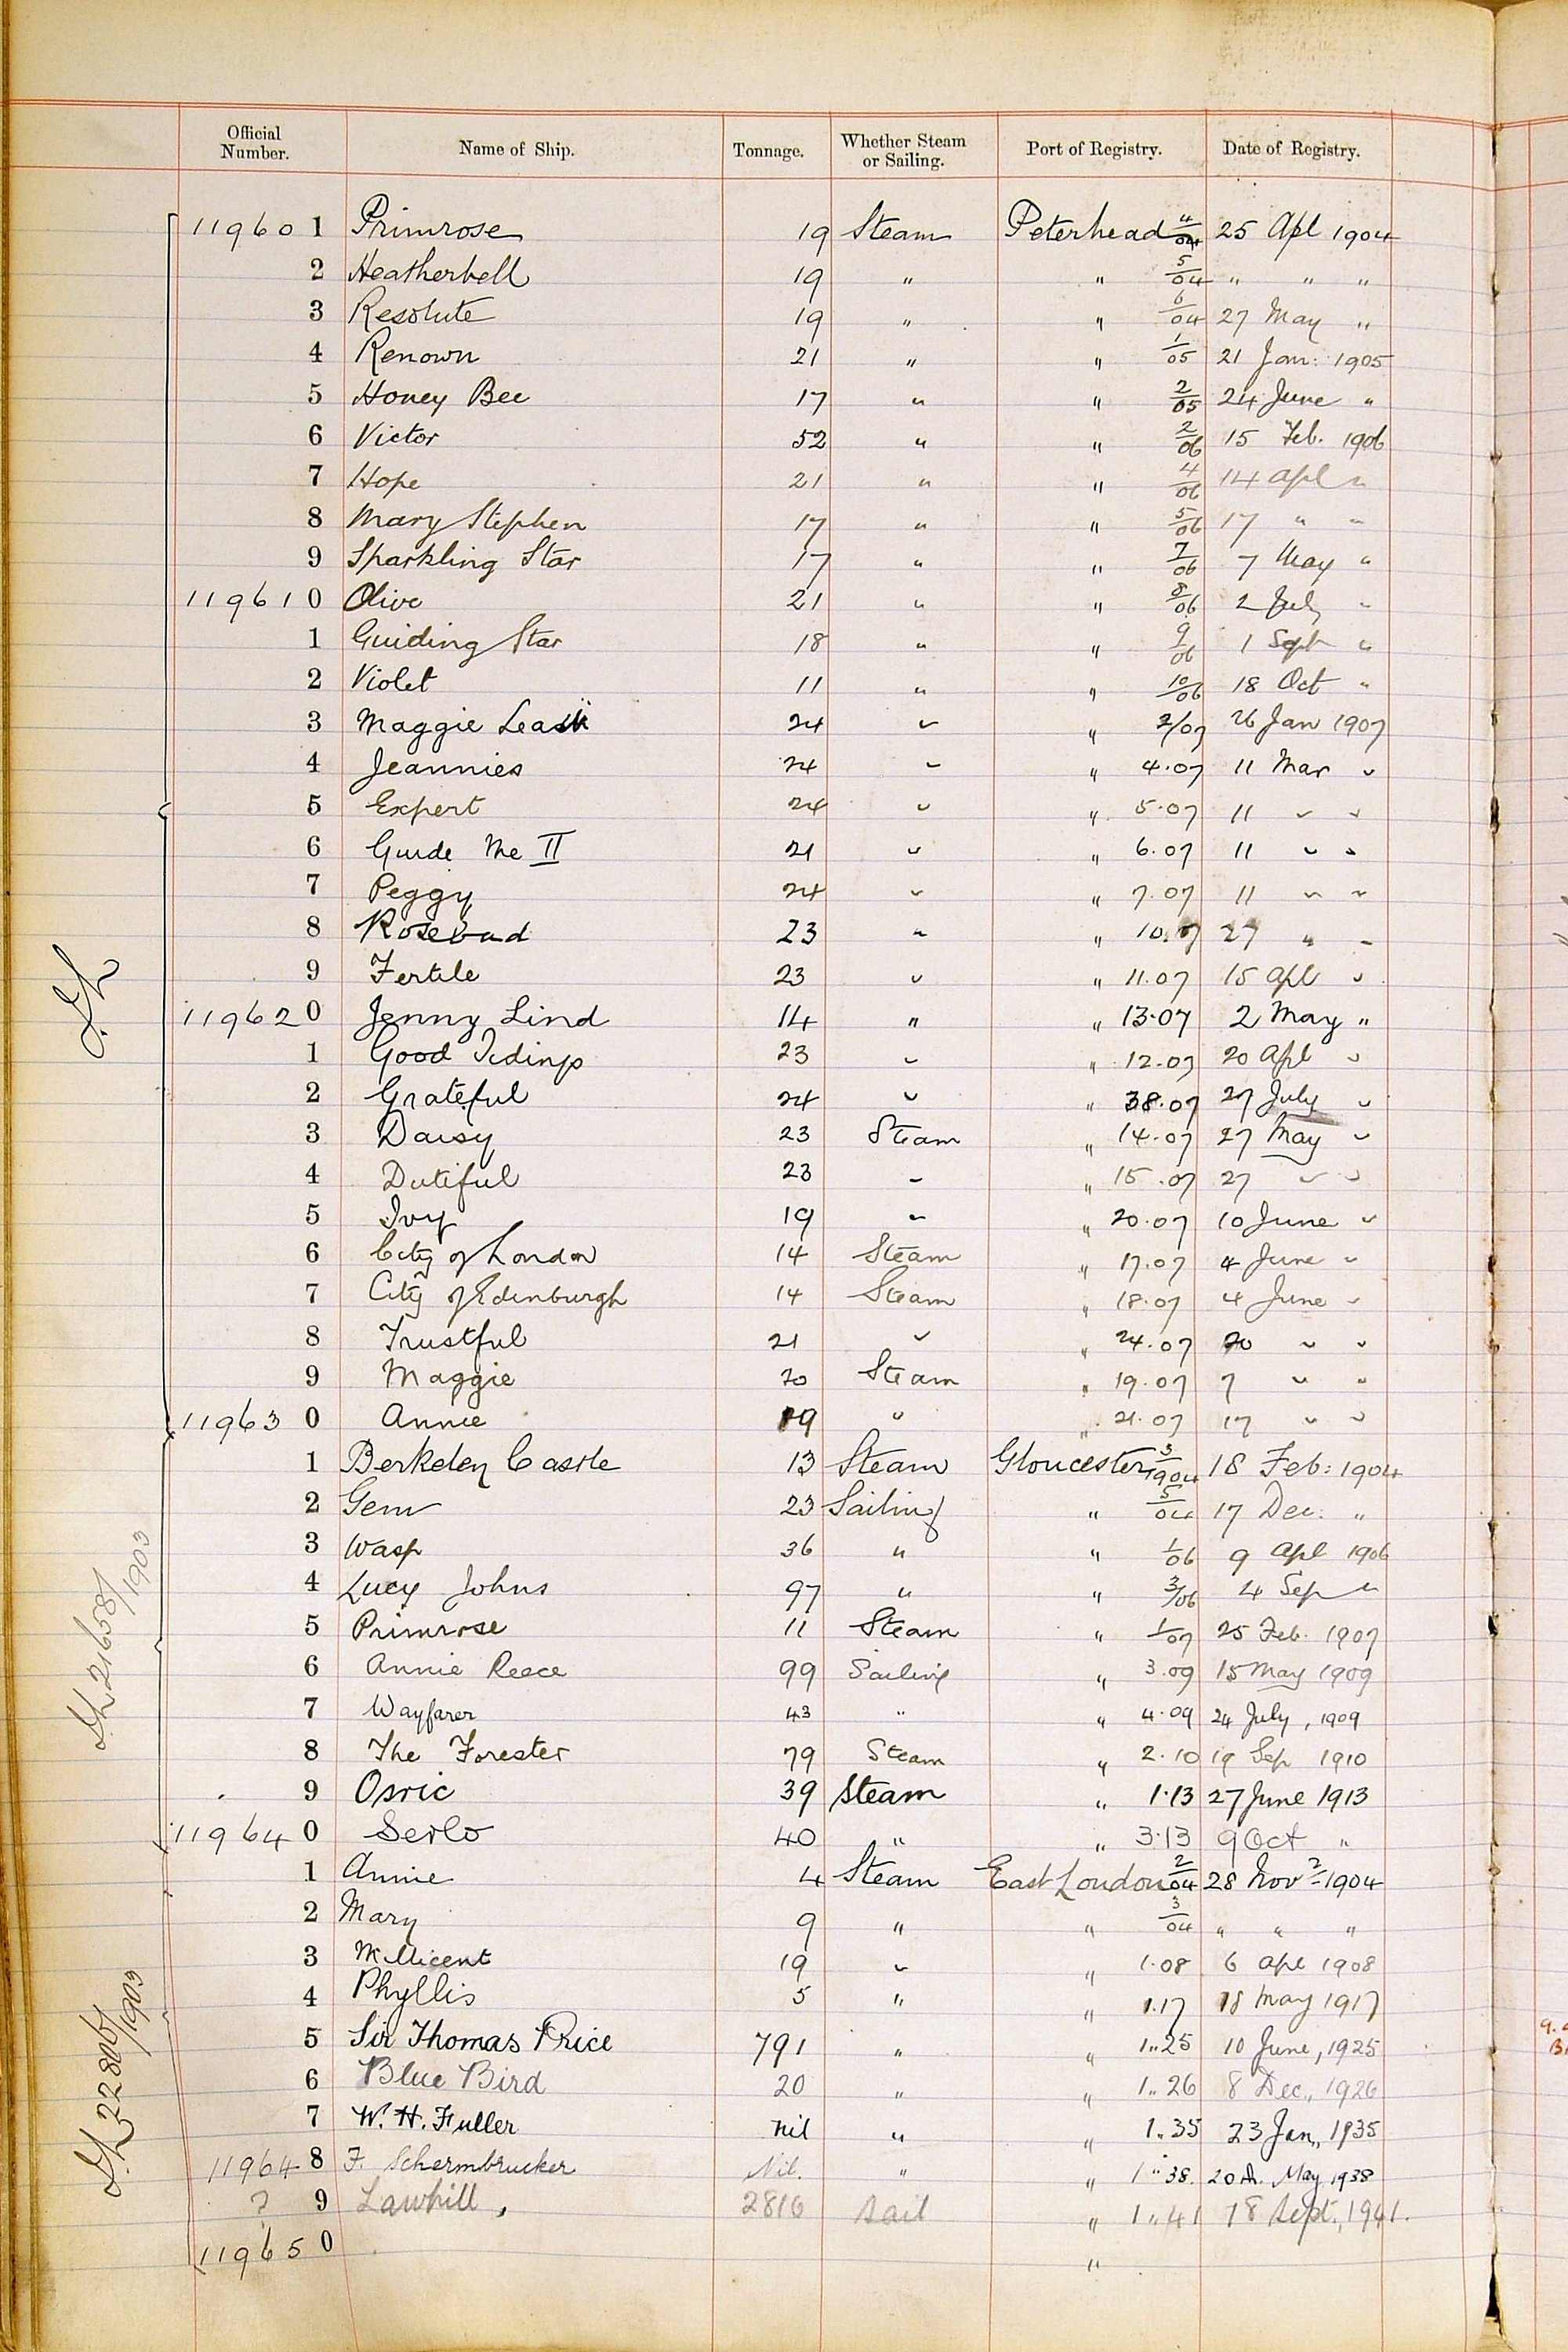 Official Number. Name of Ship. Tonnage. Whether Steam or Sailing. Port of Registry. Date of Registry.
119601 Primrose 19 Steam Peterhead 4/04 25 Apl 1904
2 Heatherbell 19 " " 5/04 " " "
3 Resolute 19 " " 6/04 27 May "
4 Renown 21 " " 1/05 21 Jan: 1905
5 Honey Bee 17 " " 2/05 24 June "
6 Victor 52 " " 2/06 15 Feb. 1906
7 Hope 21 " " 4/06 14 Apl "
8 Mary Stephen 17 " " 5/06 17 " "
9 Sparkling Star 17 " " 7/06 7 May "
119610 Olive 21 " " 8/06 2 July "
1 Guiding Star 18 " " 9/06 1 Sept "
2 Violet 11 " " 10/06 18 Oct "
3 Maggie Leask 24 " " 2/07 26 Jan 1907
4 Jeannies 24 " " 4.07 11 Mar "
5 Expert 24 " " 5.07 11 " "
6 Guide Me II 21 " " 6.07 11 " "
7 Peggy 24 " " 7.07 11 " "
8 Rosebud 23 " " 10.07 27 " "
9 Fertile 23 " " 11.07 15 Apl "
119620 Jenny Lind 14 " " 13.07 2 May "
1 Good Tidings 23 " " 12.07 20 Apl "
2 Grateful 24 " " 38.07 27 July "
3 Daisy 23 Steam " 14.07 27 May "
4 Dutiful 23 " " 15.07 27 " "
5 Ivy 19 " " 20.07 10 June "
6 City of London 14 Steam " 17.07 4 June "
7 City of Edinburgh 14 Steam " 18.07 4 June "
8 Trustful 21 " " 24.07 20 " "
9 Maggie 20 Steam " 19.07 7 " "
119630 Annie 19 " " 21.07 17 " "
1 Berkeley Castle 13 Steam Gloucester 3/1904 18 Feb: 1904
2 Gem 23 Sailing " 5/04 17 Dec: "
3 Wasp 36 " " 1/06 9 Apl 1906
4 Lucy Johns 97 " " 3/06 4 Sep "
5 Primrose 11 Steam " 1/07 25 Feb. 1907
6 Annie Reece 99 Sailing " 3.09 15 May 1909
7 Wayfarer 43 " " 4.09 24 July, 1909
8 The Forester 79 Steam " 2.10 19 Sep 1910
9 Osric 39 Steam " 1.13 27 June 1913
119640 Serlo 40 " " 3.13 9 Oct "
1 Annie 4 Steam East London 2/04 28 Novr 1904
2 Mary 9 " " 3/04 " " "
3 Millicent 19 " " 1.08 6 Apl 1908
4 Phyllis 5 " " 1.17 18 May 1917
5 Sir Thomas Price 791 " " 1..25 10 June, 1925
6 Blue Bird 20 " " 1..26 8 Dec., 1926
7 W. H. Fuller nil " " 1..35 23 Jan., 1935
119648 F. Schermbrucker Nil. " " 1..38. 20th. May 1938
? 9 Lawhill, 2816 sail " 1..41 18 Sept., 1941.
119650 "
21658/1903
22806/1903